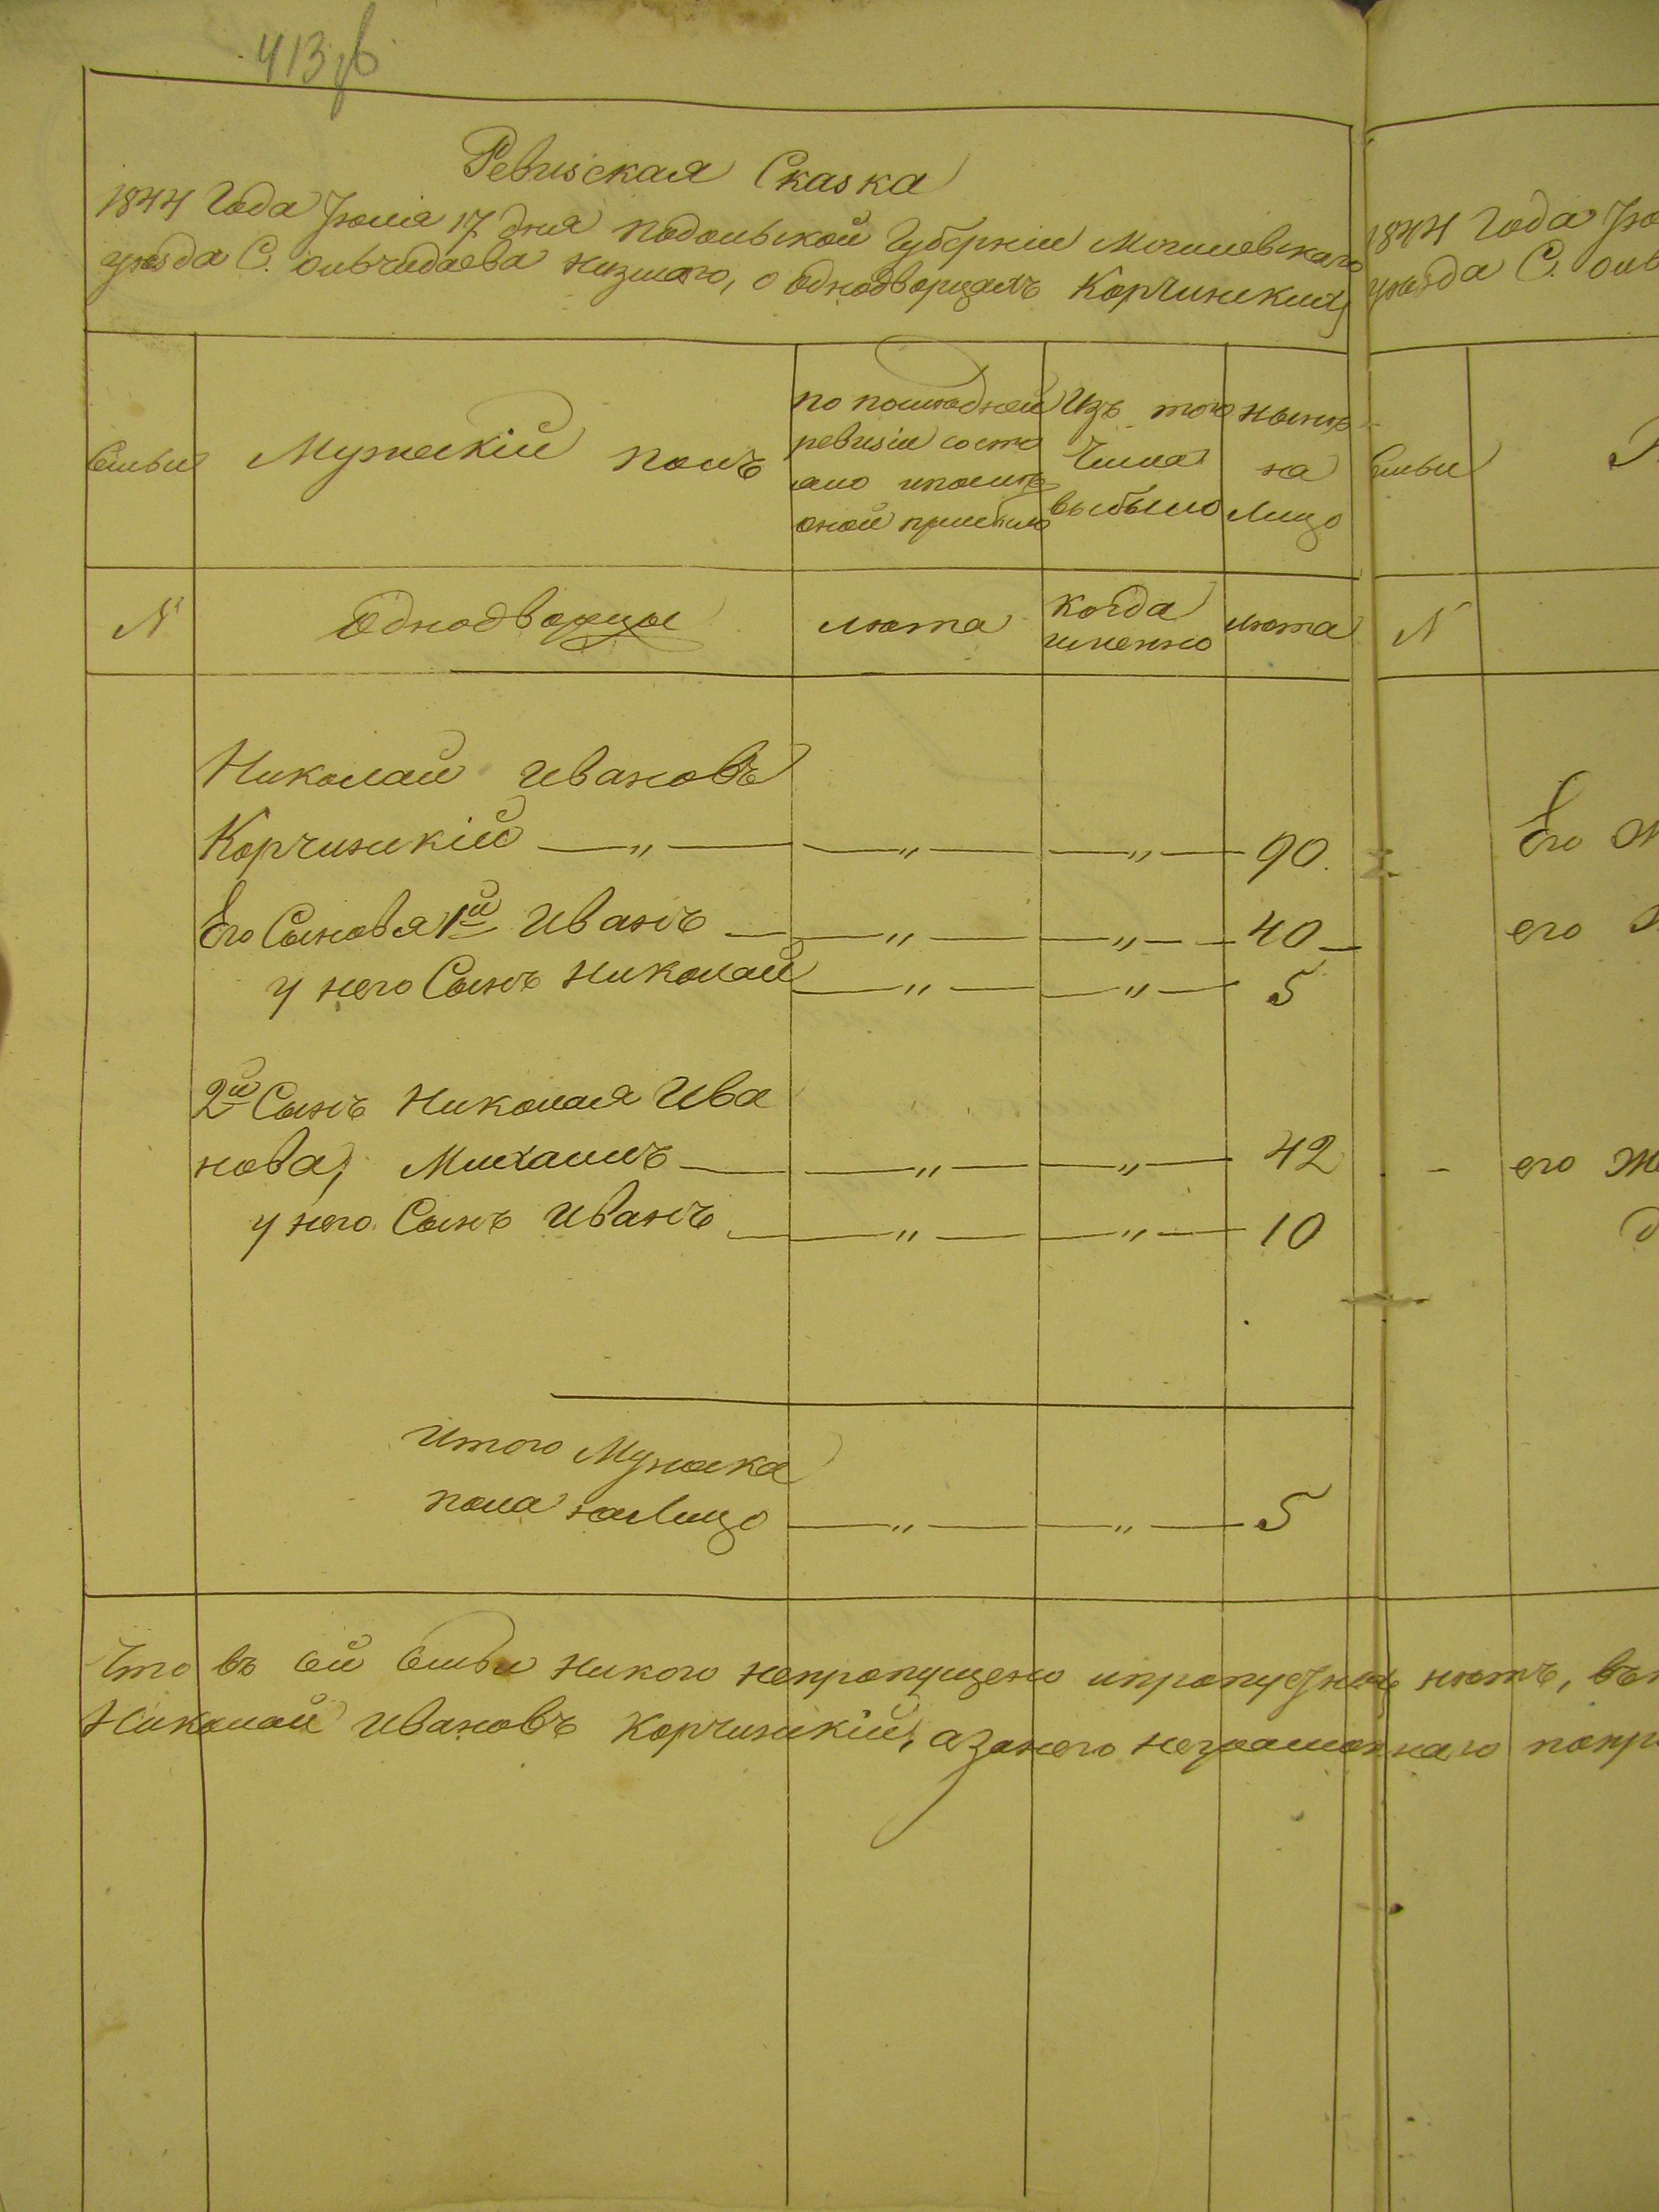 413 об
Ревизская Сказка
1844 Года Июля 17 дня подольской Губернии Могилевскаго
уезда С. ольчидаева низшаго, о однодворцахъ Корчинских
1844 Года
уезда С.
Семьи
Мужескій полъ
по последней
ревизіи состо
яло и после
оной прибыло
Изъ того
Числа
выбыло
ныне
на
Лицо
Семьи
N
Однодворцы
лета
когда
именно
лета
N
Николай Ивановъ
Корчинскій — „ — — „ — — „ — 90.
Его
Его Сыновя 1й Иванъ — — „ — — „ — — 40 —
его
у него Сынъ Николай — „ — — „ — 5
2й Сынъ Николая Ива
нова, Михаилъ — — „ — — „ — 42
его
у него Сынъ Иванъ — — „ — — „ — 10
Итого Мужеска
пола налицо — „ — — „ — 5
Что въ сей Семьи никого непропущено и пропускных нетъ, въ
Николай Ивановъ Корчинскій, а занего неграмотнаго